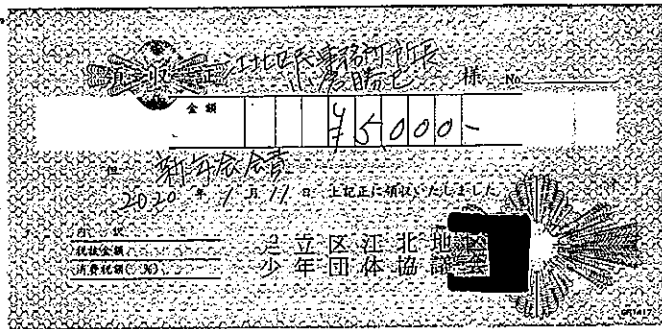 領収証
江北区民事務所所長
小倉勝巳 様 No.
金額 ¥5000-
但 新年会会費
2020年1月11日 上記正に領収いたしました
内訳
税抜金額
消費税額( %)
足立区江北地区
少年団体協議会